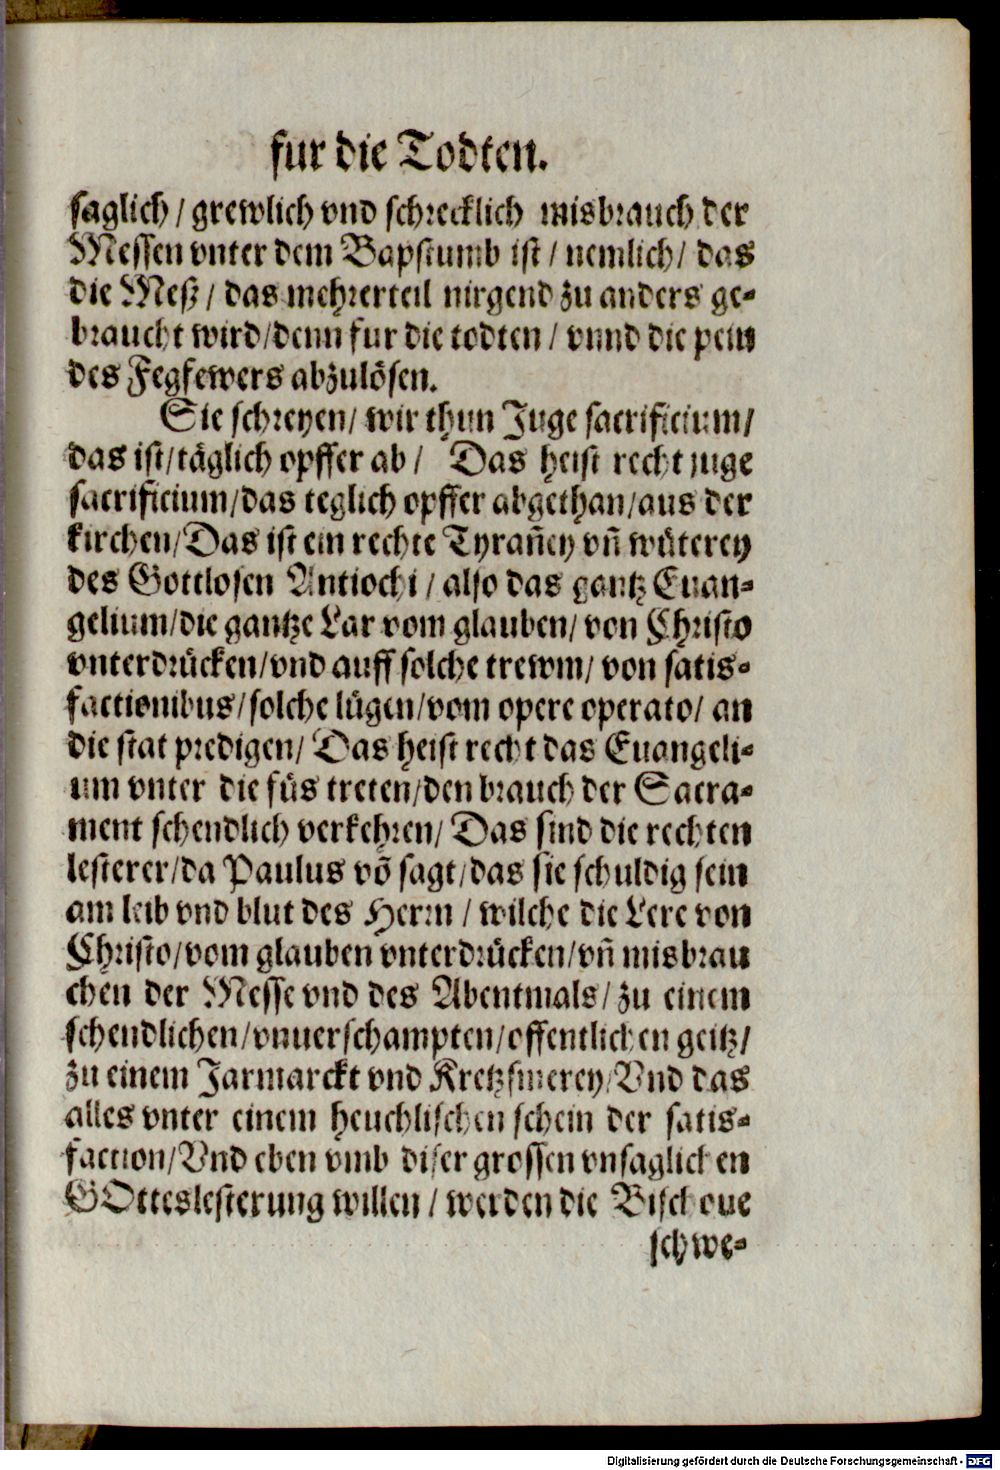 fur die Todten.
saglich / grewlich vnd schrecklich misbrauch der
Messen vnter dem Bapstumb ist / nemlich / das
die Meß / das mehrerteil nirgend zu anders ge-
braucht wird / denn fur die todten / vnnd die pein
des Fegfewers abzulösen.
Sie schreyen / wir thun Juge sacrificium /
das ist / täglich opffer ab / Das heist recht juge
sacrificium / das teglich opffer abgethan / aus der
kirchen / Das ist ein rechte Tyrañey vñ wüterey
des Gottlosen Antiochi / also das gantz Euan-
gelium / die gantze Lar vom glauben / von Christo
vnterdrücken / vnd auff solche trewm / von satis-
factionibus / solche lügen / vom opere operato / an
die stat predigen / Das heist recht das Euangeli-
um vnter die füs treten / den brauch der Sacra-
ment schendlich verkehren / Das sind die rechten
lesterer / da Paulus võ sagt / das sie schuldig sein
am leib vnd blut des Herrn / wilche die Lere von
Christo / vom glauben vnterdrücken / vñ misbrau
chen der Messe vnd des Abentmals / zu einem
schendlichen / vnuerschampten / offentlichen geitz /
zu einem Jarmarckt vnd Kretzsmerey / Vnd das
alles vnter einem heuchlischen schein der satis-
faction / Vnd eben vmb diser grossen vnsaglichen
GOtteslesterung willen / werden die Bischoue
schwe-
Digitalisierung gefördert durch die Deutsche Forschungsgemeinschaft - DFG